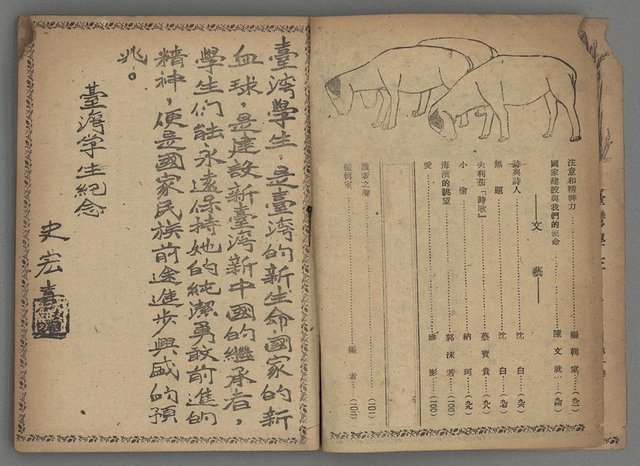 注意和精神力……編輯室…(九二)
國家建設與我們的使命……陳文彬…(九四)
——文藝——
詩與詩人……沈白…(九六)
無題……沈白…(九七)
夫利茄「詩歌」……蔡寶貴…(九八)
小偷……納珂…(九九)
海濱的眺望……郭沫若…(一〇〇)
愛……珍影…(一〇〇)
讀者之聲……(一〇一)
編輯室……編者…(一〇二)
臺灣學生,是臺灣的新生命國家的新
血球,是建設新臺灣新中國的繼承者,
學生們能永遠保持她的純潔勇敢前進的
精神,便是國家民族前途進步興盛的預
兆。
臺灣学生紀念
史宏熹題